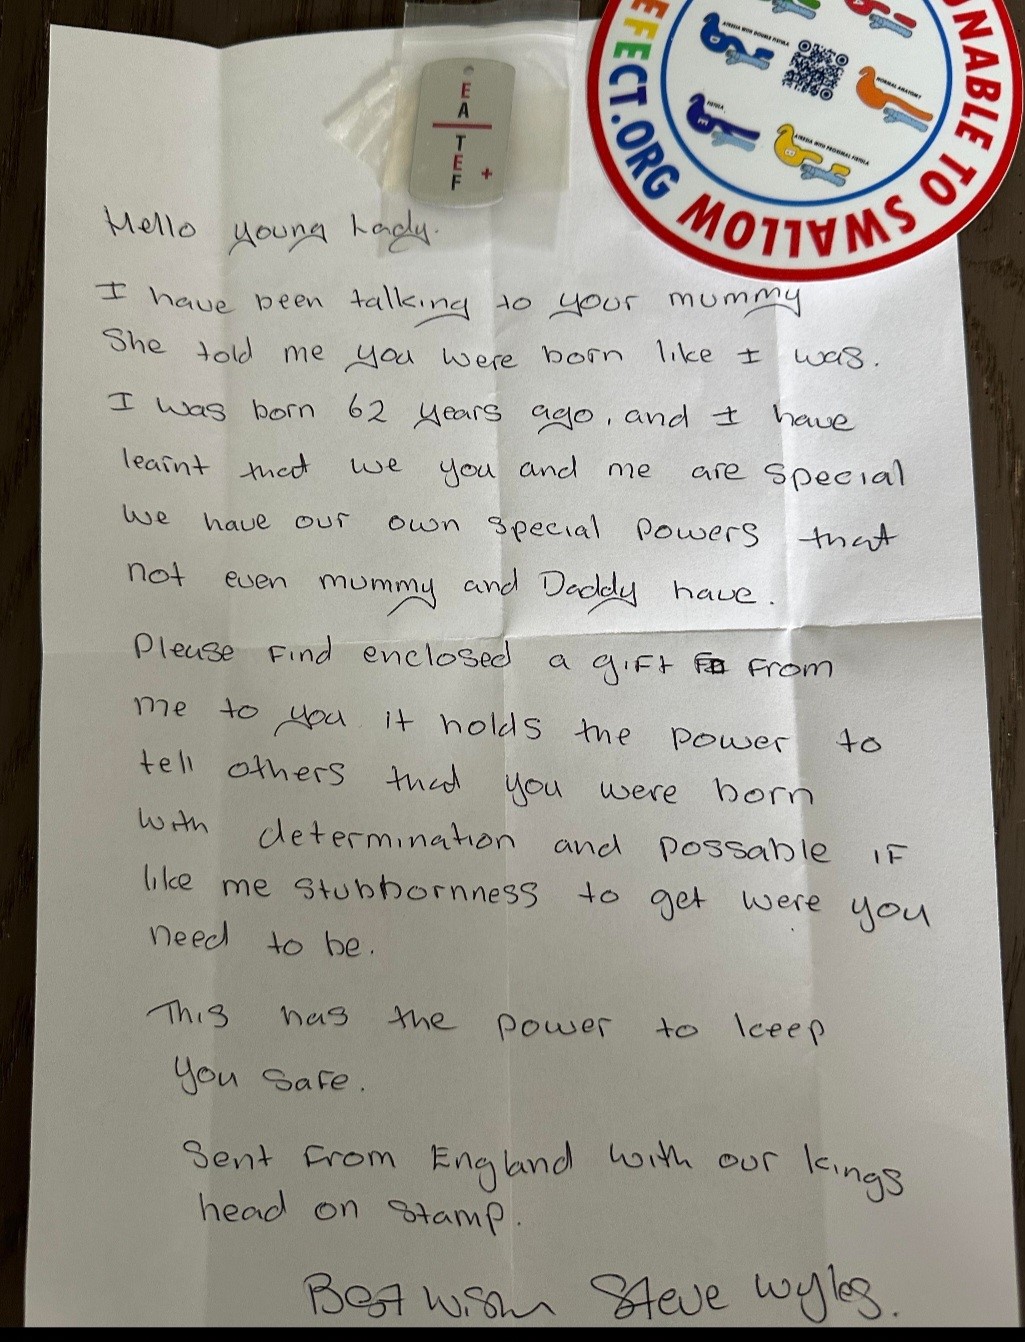 E
A
T
E +
F
EFECT.ORG
UNABLE TO SWALLOW
ATRESIA WITH DOUBLE FISTULA
NORMAL ANATOMY
FISTULA
ATRESIA WITH PROXIMAL FISTULA
Hello young Lady.
I have been talking to your mummy
She told me you were born like I was.
I was born 62 years ago, and I have
learnt that we you and me are special
We have our own special powers that
not even mummy and Daddy have.
Please find enclosed a gift from
me to you it holds the power to
tell others that you were born
with determination and possable if
like me stubbornness to get were you
need to be.
This has the power to keep
you safe.
Sent from England with our kings
head on stamp.
Best wish Steve Wyles.